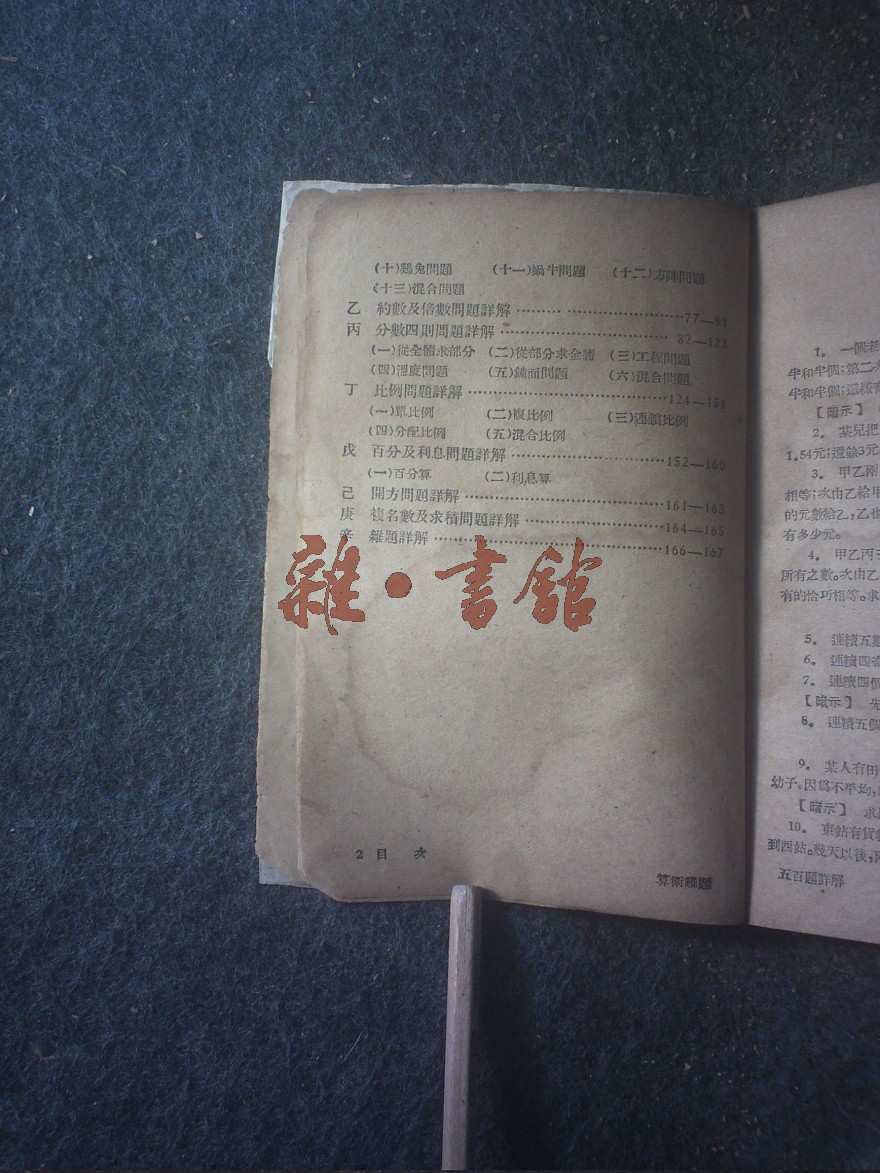 (十)鷄兔問題 (十一)蝸牛問題 (十二)方陣問題
(十三)混合問題
乙 約數及倍數問題詳解……………………77—81
丙 分數四則問題詳解……………………82—123
(一)從全體求部分 (二)從部分求全體 (三)工程問題
(四)溫度問題 (五)鐘面問題 (六)混合問題
丁 比例問題詳解……………………124—151
(一)單比例 (二)複比例 (三)連鎖比例
(四)分配比例 (五)混合比例
戊 百分及利息問題詳解……………………152—160
(一)百分算 (二)利息算
己 開方問題詳解……………………161—163
庚 複名數及求積問題詳解……………………164—165
辛 雜題詳解……………………166—167
雜·書館
2 目 次
算術難題
1。 一個老
半和半個;第二次
半和半個;這樣
【暗示】
2。 某兒把
1.54元;還餘3元
3。 甲乙兩
相等;次由乙給甲
的元數給乙,乙也
有多少元。
4。 甲乙丙三
所有之數。次由乙
有的恰巧相等。求
5。 連續五數
6。 連續四奇
7。 連續四個
【暗示】 先
8。 連續五個
9。 某人有田
幼子。因爲不平均,
【暗示】 求
10。 東站有貨
到西站。幾天以後,
五百題詳解